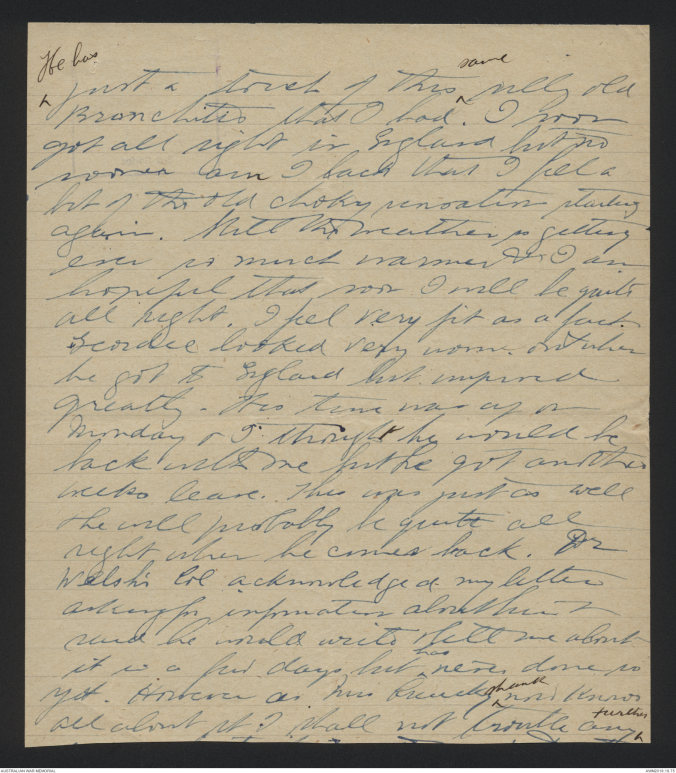 He has
just a touch of this same silly old
Bronchitis that I had. I soon
got all right in England but no
sooner am I back that I feel a
bit of the old choky sensation starting
again. Still the weather is getting
ever so much warmer & I am
hopeful that soon I will be quite
all right. I feel very fit as a fact.
Geordie looked very worn out when
he got to England but improved
greatly. His time was up on
Monday & I thought he would be
back with me but he got another
weeks leave. This was just as well
& he will probably be quite all
right when he comes back. Dr
Welsh's Col acknowledged my letter
asking for information about him &
said he would write & tell me about
it in a few days but has never done so
yet. However as Mrs now knows
all about it I shall not trouble any
further
AUSTRALIAN WAR MEMORIAL